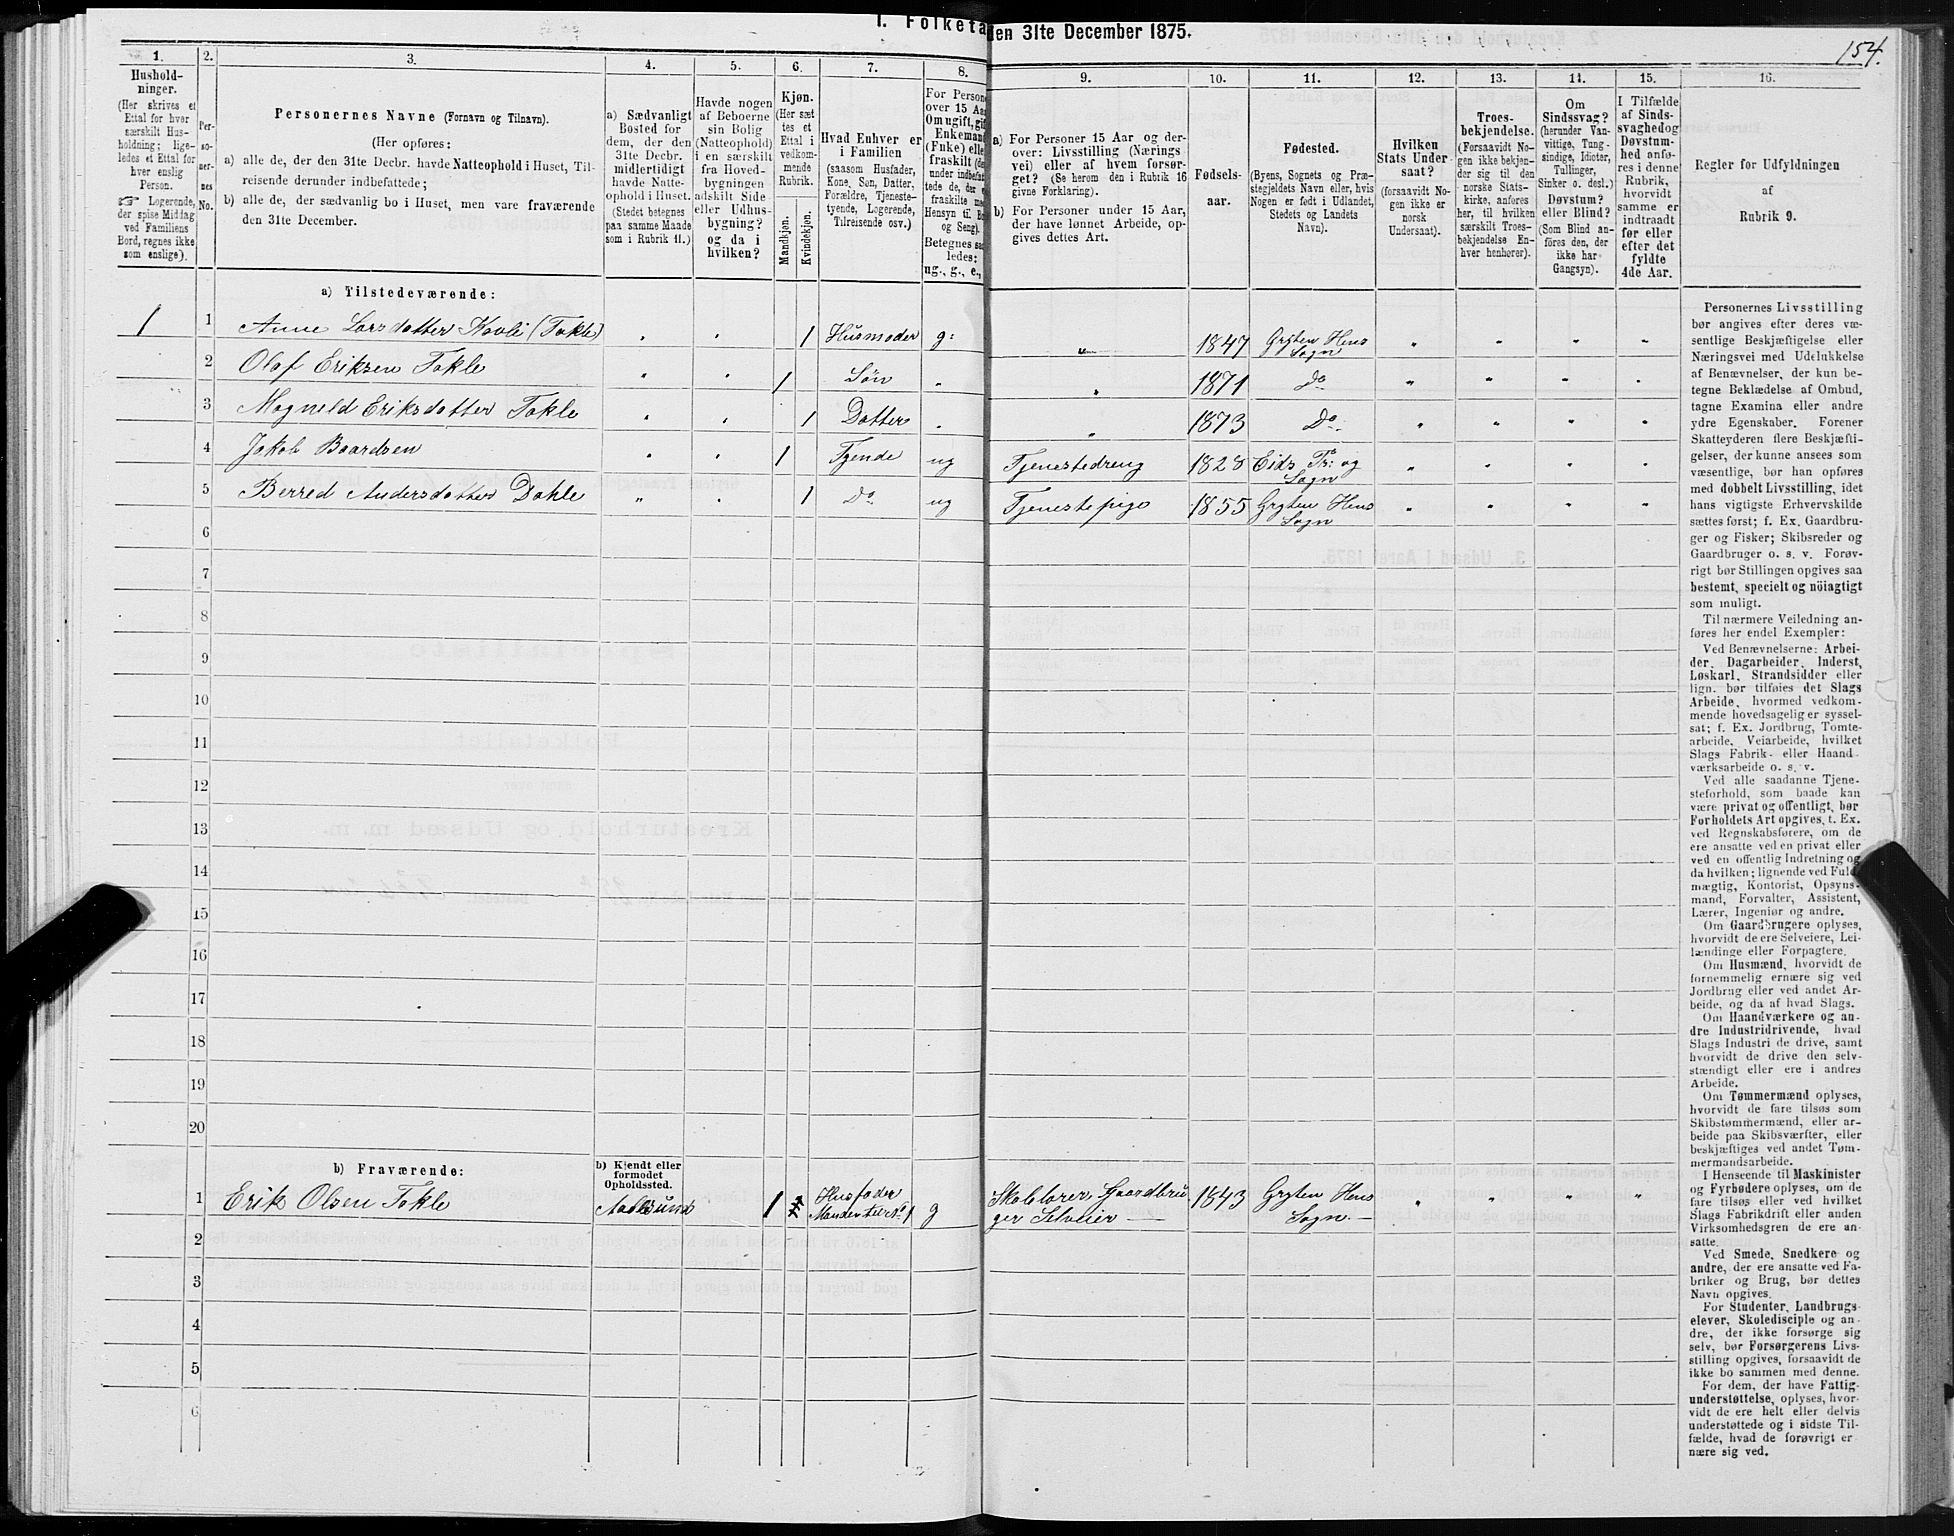 I. Folketa
den 31te December 1875.
154.
1.
Hushold-
ninger.
(Her skrives et
Ettal for hver
særskilt Hus-
holdning; lige-
ledes et Ettal for
hver enslig
Person.
☞ Logerende,
der spise Middag
ved Familiens
Bord, regnes ikke
som enslige).
2.
Per-
so-
ner-
nes
No.
3.
Personernes Navne (Fornavn og Tilnavn).
(Her opføres:
a) alle de, der den 31te Decbr. havde Natteophold i Huset, Til-
reisende derunder indbefattede;
b) alle de, der sædvanlig bo i Huset, men vare fraværende
den 31te December.
4.
a) Sædvanligt
Bosted for
dem, der den
31te Decbr.
midlertidigt
havde Natte-
ophold i Huset.
(Stedet betegnes
paa samme Maade
som i Rubrik 11.)
5.
Havde nogen
af Beboerne
sin Bolig
(Natteophold)
i en særskilt
fra Hoved-
bygningen
adskilt Side
eller Udhus-
bygning?
og da i
hvilken?
6.
Kjøn.
(Her sæt
tes et
Ettal i
vedkom-
mende
Rubrik.
Mandkjøn.
Kvindekjøn.
7.
Hvad Enhver er
i Familien
(saasom Husfader,
Kone, Søn, Datter,
Forældre, Tjeneste-
tyende, Logerende,
Tilreisende osv.)
8.
For Person
over 15 Aar
Om ugift, gif
Enkemand
(Enke) elle
fraskilt (de
under indbefat
tede de, der e
fraskilte med
Hensyn til Bo
og Seng).
Betegnes saa
ledes:
ug., g., e.,
9.
a) For Personer 15 Aar og der-
over: Livsstilling (Nærings
vei) eller af hvem forsør-
get? (Se herom den i Rubrik 16
givne Forklaring).
b) For Personer under 15 Aar,
der have lønnet Arbeide, op-
gives dettes Art.
10.
Fødsels-
aar.
11.
Fødested.
(Byens, Sognets og Præ-
stegjeldets Navn eller, hvis
Nogen er født i Udlandet,
Stedets og Landets
Navn).
12.
Hvilken
Stats Under
saat?
(forsaavidt No-
gen ikke er
norsk
Undersaat).
13.
Troes-
bekjendelse.
(Forsaavidt No-
gen ikke bekjen-
der sig til den
norske Stats-
kirke, anføres
her, til hvilken
særskilt Troes-
bekjendelse En-
hver henhører).
14.
Om
Sindssvag?
(herunder Van-
vittige, Tung-
sindige, Idioter,
Tullinger,
Sinker o. desl.)
Døvstum?
eller Blind?
(Som Blind an-
føres den, der
ikke har
Gangsyn).
15.
I Tilfælde
af Sinds-
svaghedog
Døvstum-
hed anfø-
res i denne
Rubrik,
hvorvidt
samme er
indtraadt
før eller
efter det
fyldte
4de Aar.
16.
Regler for Udfyldningen
af
Rubrik 9.
a) Tilstedeværende:
1 1 Anne Larsdatter Kavli (Tokle) " " 1 Husmoder g: " 1847 Gryten Hens Sogn " " " "
2 Olaf Eriksen Tokle " " 1 Søn " " 1871 Do " " " "
3 Magneld Eriksdatter Tokle " " 1 Datter " " 1873 Do " " " "
4 Jakob Baardsen " " 1 Tjende ug Tjenestedreng 1828 Eids Pr: og Sogn " " " "
5 Berred Andersdatter Dahle " " 1 Do ug Tjenestepige 1855 Gryten Hens Sogn " " " "
6
7
8
9
10
11
12
13
14
15
16
17
18
19
20
b) Fraværende:
b) Kjendt eller
formodet
Opholdssted.
1 Erik Olsen Tokle Aalesund 1 Husfader g Skolelærer, Gaardbru 1843 Gryten Hens " " " "
ger Selveier — Sogn. —
2
3
4
5
6
Personernes Livsstilling
bør angives efter deres væ-
sentlige Beskjæftigelse eller
Næringsvei med Udelukkelse
af Benævnelser, der kun be-
tegne Beklædelse af Ombud,
tagne Examina eller andre
ydre Egenskaber. Forener
Skatteyderen flere Beskjæfti-
gelser, der kunne ansees som
væsentlige, bør han opføres
med dobbelt Livsstilling, idet
hans vigtigste Erhvervskilde
sættes først; f. Ex. Gaardbru-
ger og Fisker; Skibsreder og
Gaardbruger o. s. v. Forøv-
rigt bør Stillingen opgives saa
bestemt, specielt og nöiagtigt
som muligt.
Til nærmere Veiledning an-
føres her endel Exempler:
Ved Benævnelserne: Arbei-
der, Dagarbeider, Inderst,
Løskarl, Strandsidder eller
lign. bør tilføies det Slags
Arbeide, hvormed vedkom-
mende hovedsagelig er syssel-
sat; f. Ex. Jordbrug, Tomte-
arbeide, Veiarbeide, hvilket
Slags Fabrik- eller Haand-
værksarbeide o. s. v.
Ved alle saadanne Tjene-
steforhold, som baade kan
være privat og offentligt, bør
Forholdets Art opgives, t. Ex.
ved Regnskabsførere, om de
ere ansatte ved en privat eller
ved en offentlig Indretning og
da hvilken; lignende ved Fuld
mægtig, Kontorist, Opsyns-
mand, Forvalter, Assistent,
Lærer, Ingeniør og andre.
Om Gaardbrugere oplyses,
hvorvidt de ere Selveiere, Lei-
lændinge eller Forpagtere.
Om Husmænd, hvorvidt de
fornemmelig ernære sig ved
Jordbrug eller ved andet Ar-
beide, og da af hvad Slags.
Om Haandværkere og an-
dre Industridrivende, hvad
Slags Industri de drive, samt
hvorvidt de drive den selv-
stændigt eller ere i andres
Arbeide.
Om Tømmermænd oplyses,
hvorvidt de fare tilsøs som
Skibstømmermænd, eller ar-
beide paa Skibsværfter, eller
beskjæftiges ved andet Tøm-
mermandsarbeide.
I Henseende til Maskinister
og Fyrbødere oplyses, om de
fare tilsøs eller ved hvilket
Slags Fabrikdrift eller anden
Virksomhedsgren de ere an-
satte.
Ved Smede, Snedkere og
andre, der ere ansatte ved Fa-
briker og Brug, bør dettes
Navn opgives.
For Studenter, Landbrugs-
elever, Skoledisciple og an-
dre, der ikke forsørge sig
selv, bør Forsørgerens Livs-
stilling opgives, forsaavidt de
ikke bo sammen med denne.
For dem, der have Fattig-
understøttelse, oplyses, hvor-
vidt de ere helt eller delvis
understøttede og i sidste Til-
fælde, hvad de forøvrigt er-
nære sig ved.